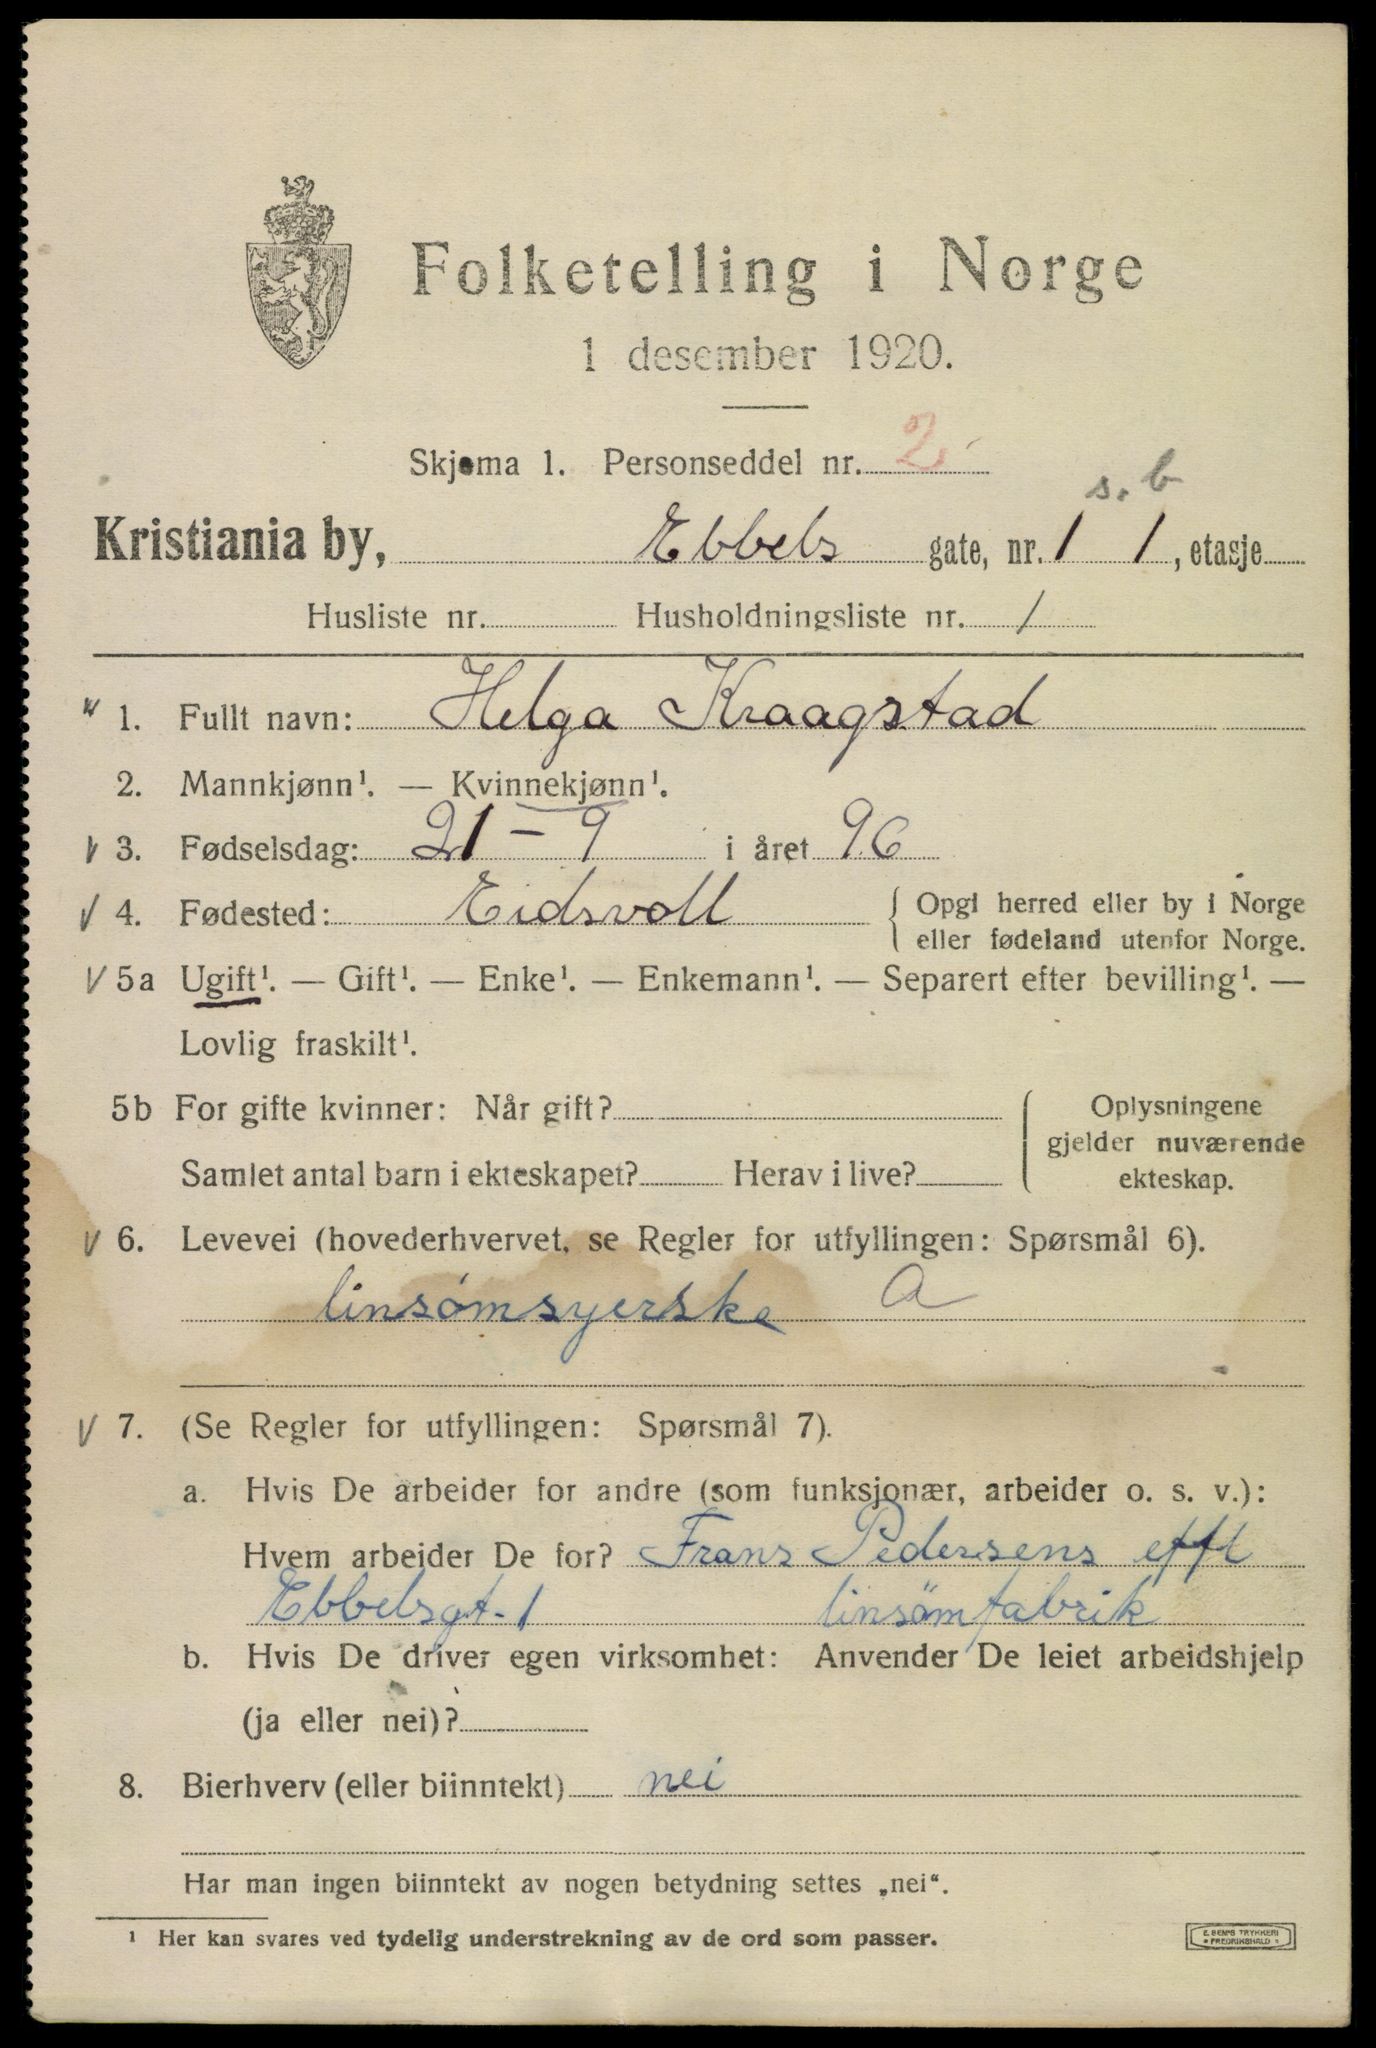 Folketelling i Norge
1 desember 1920.
Skjema 1. Personseddel nr. 2
s. b
Kristiania by, Ebbels gate, nr. 1 1, etasje
Husliste nr. Husholdningsliste nr. 1
1. Fullt navn: Helga Kraagstad
2. Mannkjønn¹. — Kvinnekjønn¹.
v 3. Fødselsdag: 21 – 9 i året 96
v 4. Fødested: Eidsvoll { Opgi herred eller by i Norge
eller fødeland utenfor Norge.
v 5a Ugift¹. — Gift¹. — Enke¹. — Enkemann¹. — Separert efter bevilling¹. —
Lovlig fraskilt¹.
5b For gifte kvinner: Når gift? { Oplysningene
gjelder nuværende
Samlet antal barn i ekteskapet? Herav i live? ekteskap.
v 6. Levevei (hovederhvervet, se Regler for utfyllingen: Spørsmål 6).
linsømsyerske a
v 7. (Se Regler for utfyllingen: Spørsmål 7).
a. Hvis De arbeider for andre (som funksjonær, arbeider o. s. v.):
Hvem arbeider De for? Frans Pedersens eftf
Ebbelsgt. 1 linsömfabrik
b. Hvis De driver egen virksomhet: Anvender De leiet arbeidshjelp
(ja eller nei)?
8. Bierhverv (eller biinntekt) nei
Har man ingen biinntekt av nogen betydning settes „nei“.
¹ Her kan svares ved tydelig understrekning av de ord som passer.
E. SEM'S TRYKKERI
FREDRIKSHALD